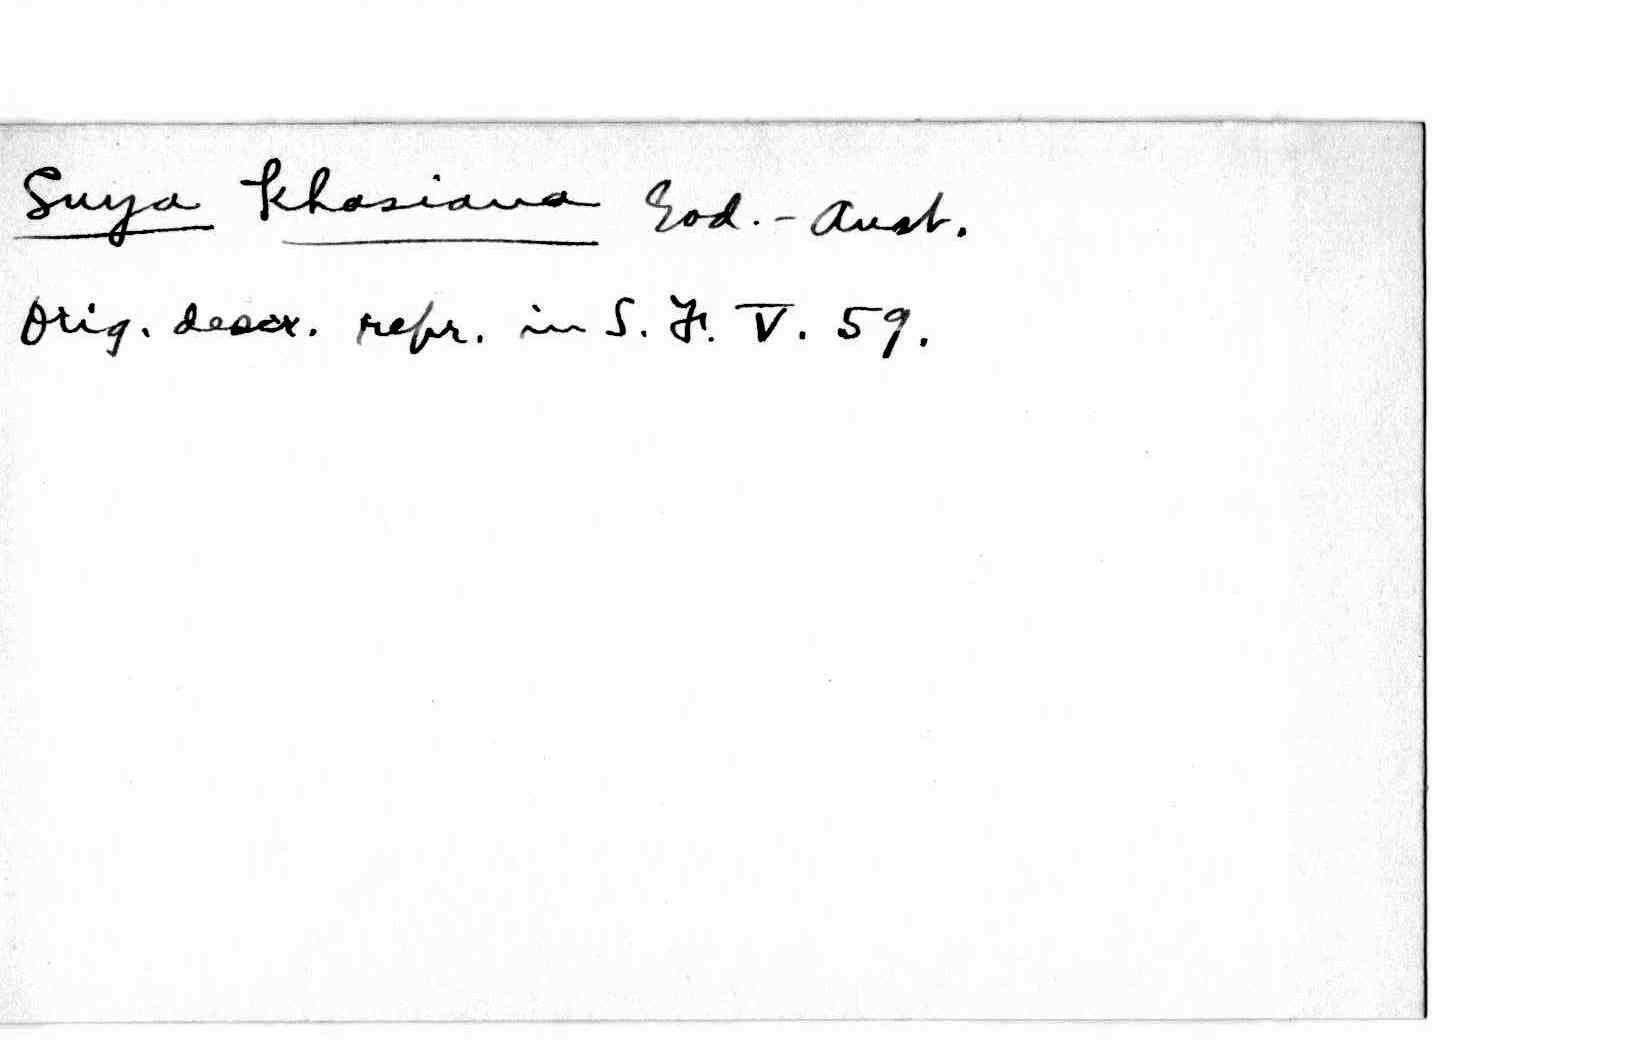 Suya Khasiana God.-Aust.
Orig. descr. repr. in S. F. V. 59.